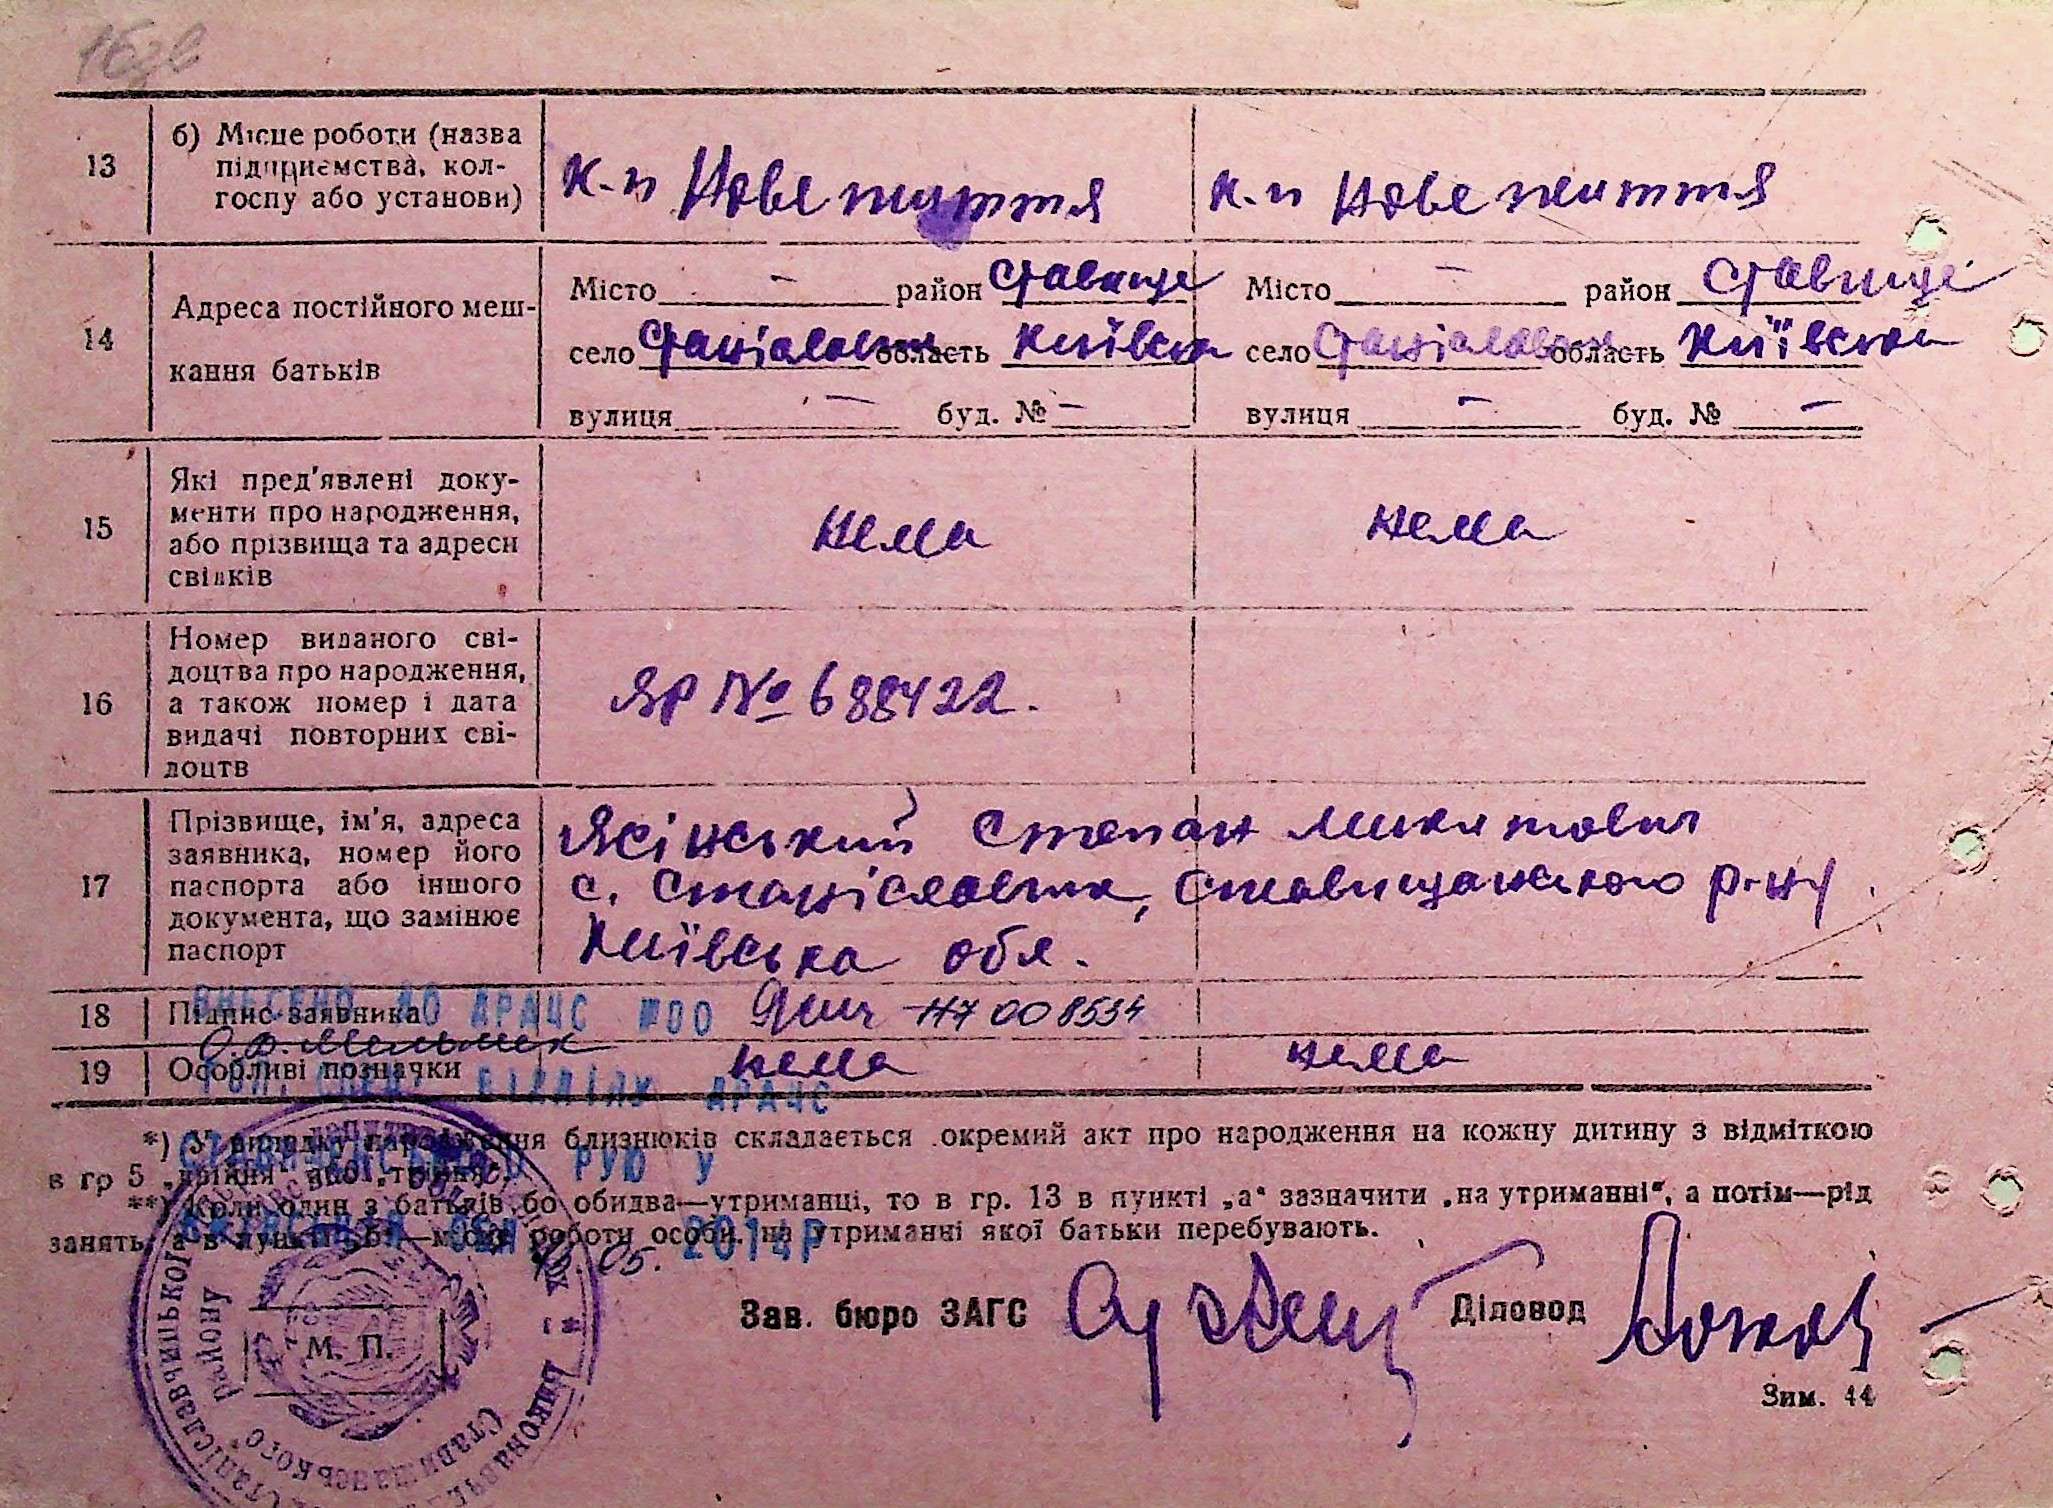 16зв
13
б) Місце роботи (назва
підприємства, кол-
госпу або установи)
к-п Нове життя
к-п Нове життя
14
Адреса постійного меш-
кання батьків
Місто — район Ставище
село Станіславчик область Київська
вулиця — буд. № —
Місто — район Ставище
село Станіславчик область Київська
вулиця — буд. № —
15
Які пред'явлені доку-
менти про народження,
або прізвища та адреси
свідків
нема
нема
16
Номер виданого сві-
доцтва про народження,
а також номер і дата
видачі повторних сві-
доцтв
ЯР № 688422.
17
Прізвище, ім'я, адреса
заявника, номер його
паспорта або іншого
документа, що замінює
паспорт
Ясінський Степан Микитович
с. Станіславчик, Ставищанського р-ну
Київська обл.
18
Підпис заявника
ВНЕСЕНО ДО ДРАЦС №00
008534
19
Особливі позначки
нема
нема
ВІДДІЛУ ДРАЦС
*) У випадку народження близнюків складається окремий акт про народження на кожну дитину з відміткою
в гр 5 „двійня" або „трійня".
РУЮ У
**) Коли один з батьків бо обидва—утриманці, то в гр. 13 в пункті „а“ зазначити „на утриманні“, а потім—рід
занять, а в пункті „б“—місце роботи особи, на утриманні якої батьки перебувають.
05. 2014Р
Зав. бюро ЗАГС
Діловод
М. П.
району
Ставищанського
Зим. 44